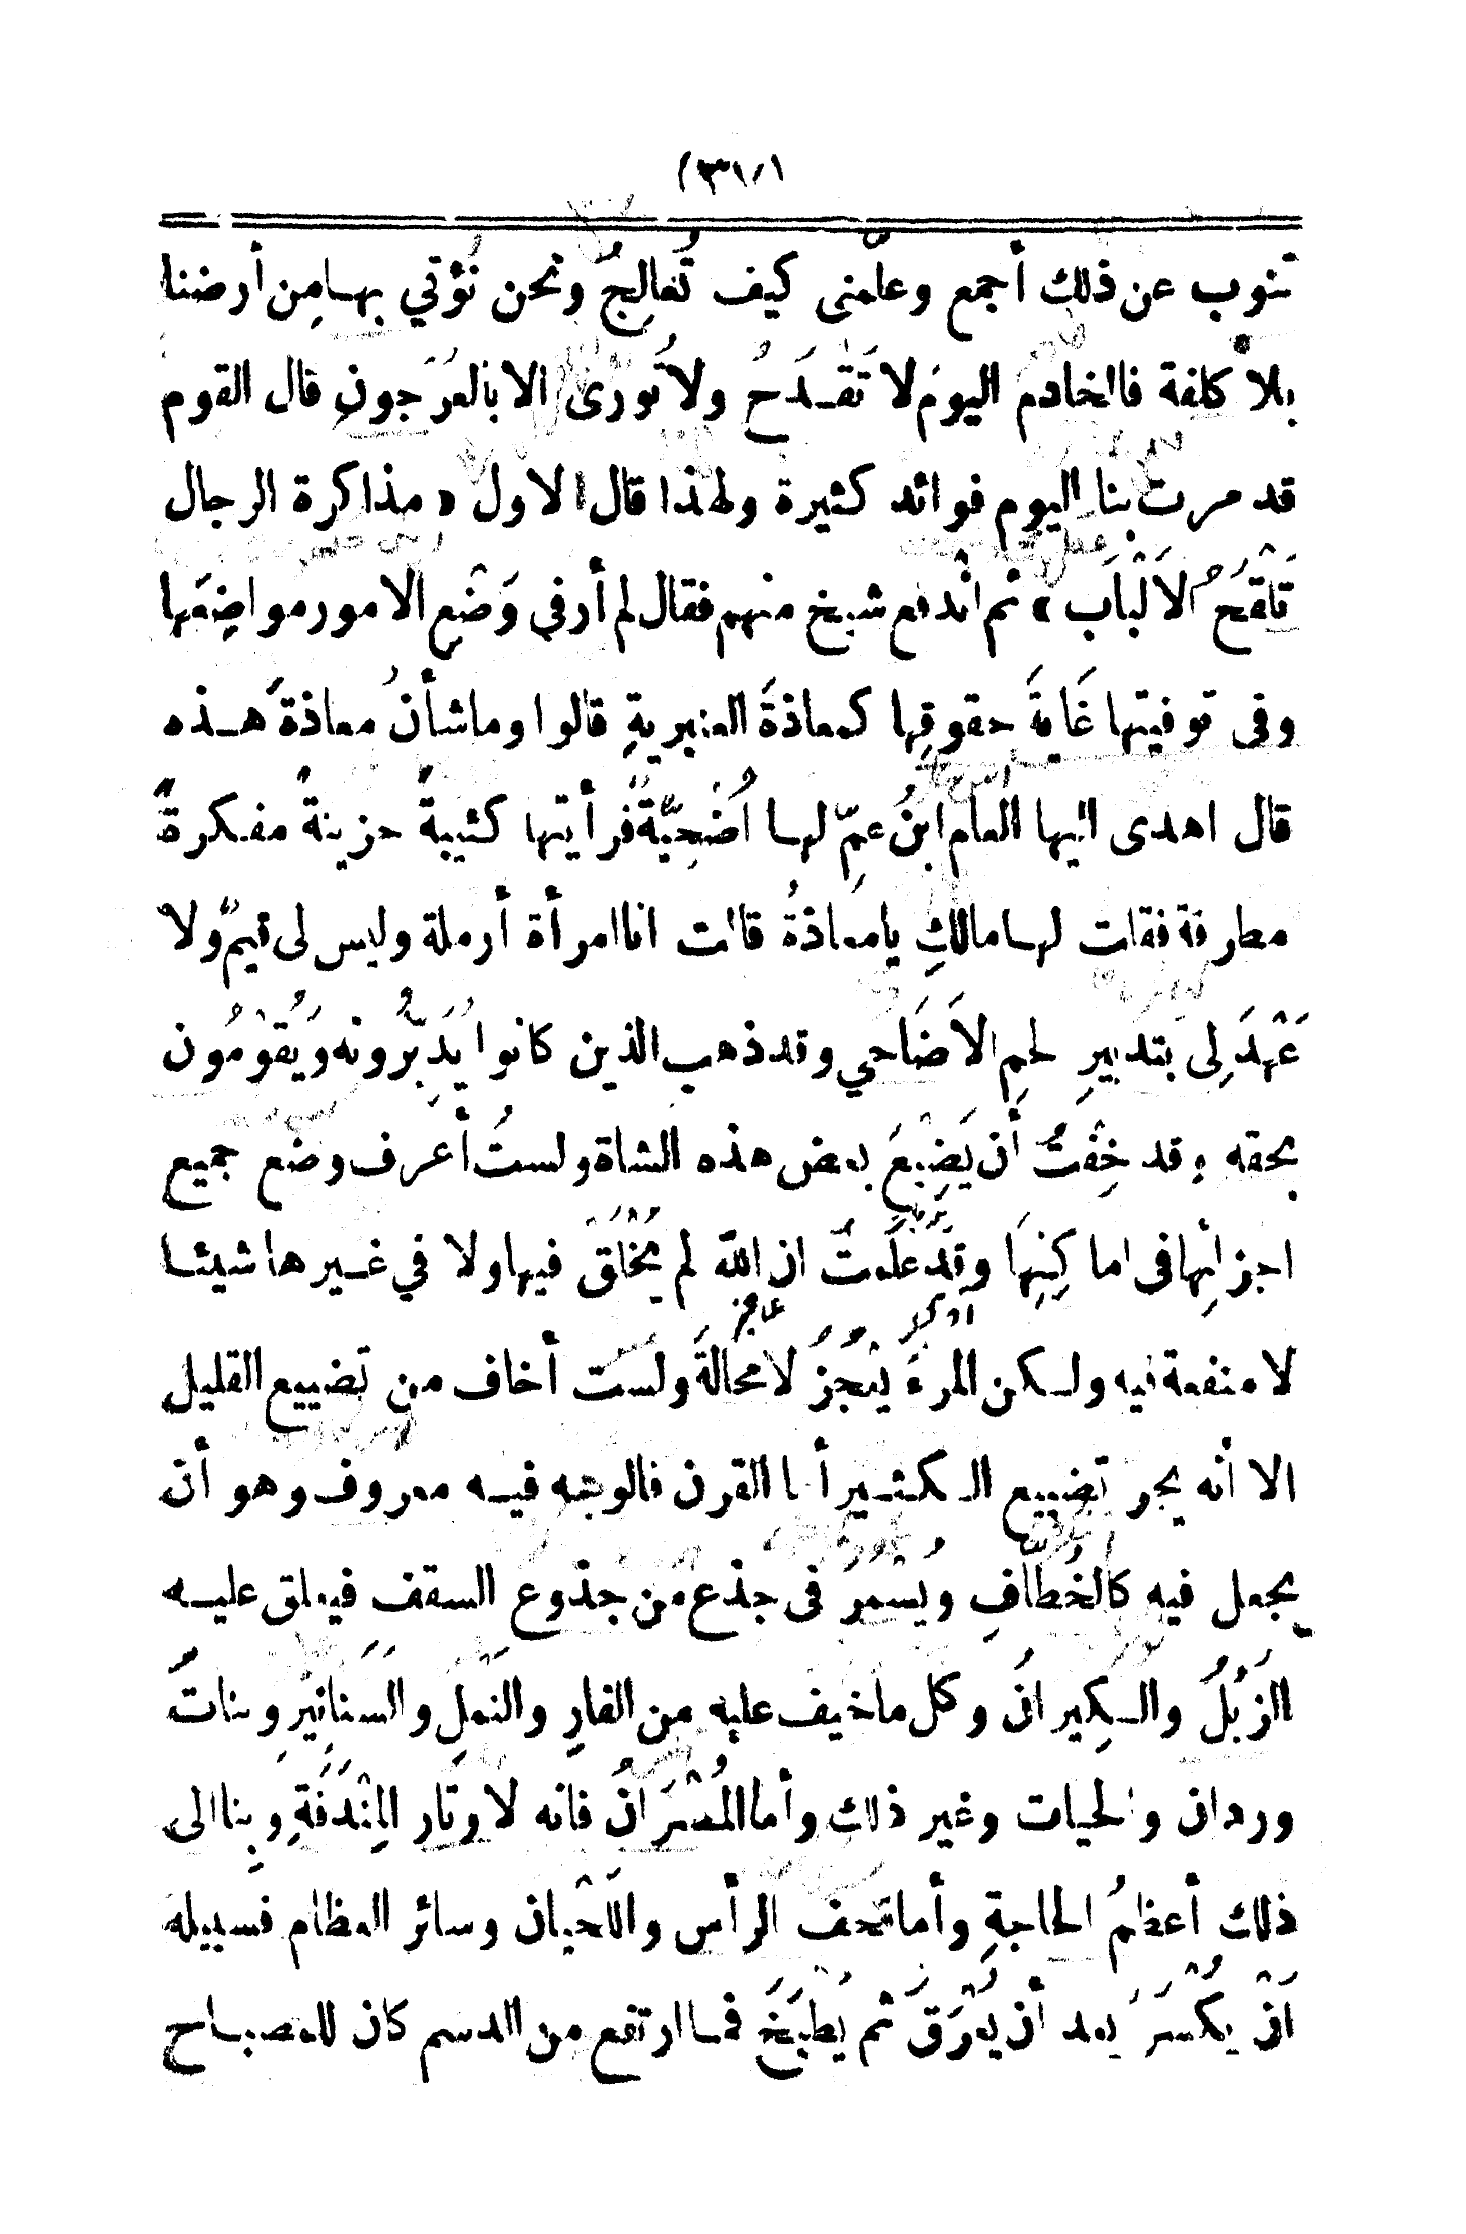 تنوب عن ذلك أجمع وعلّمني كيف تُعالِجُ ونحن نُؤتي بهـا مِن أرضنا
بلا كلفة فالخادم اليومَ لا تَقْـدَحُ ولا تُورى الا بالعُرْجونِ قال القوم
قد مرت بنا اليوم فوائد كثيرة ولهذا قال الاول « مذاكرة الرجال
تَلْقَحُ الأَلْبابَ » ثم اندفع شيخ منهم فقال لم أر في وَضْعِ الامور مواضِعَها
وفى توفيتها غَايةَ حقوقِها كمعاذةَ العنبريةِ قالوا وما شأنُ معاذةَ هـذه
قال اهدى اليها العام ابنُ عمّ لهـا اُضْحِيَّةً فرأيتها كئيبةً حزينةً مفكرةً
مطرقة فقلت لهـا مالكِ يا معاذةُ قالت انا امرأة أرملة وليس لى قيمٌ ولا
عَهْدَ لِى بتدبيرِ لحمِ الأَضَاحي وقد ذهب الذين كانوا يُدَبِّرُونه ويَقُومُون
بحقه وقد خِفْتُ أن يَضِيعَ بعض هذه الشاة ولستُ أعرف وضع جميع
اجزائِها فى اماكِنِهَا وقد علمتُ ان اللّه لم يَخْلُقْ فيها ولا في غـيرها شيئـا
لا منفعة فيه ولـكن المرءَ يَعْجَزُ لا محالةَ ولست أخاف من تضييع القليل
عاجز
الا أنه يجر تضييع الـكثـير أما القرن فالوجه فيـه معروف وهو أن
يجعل فيه كالخُطافِ ويُسْمَرُ فى جذع من جذوع السقف فيعلق عليـه
الزُبُلُ والـكِيرانُ وكل ما خيف عليه من الفارِ والنملِ والسَنانِيْرِ وبناتُ
وردان والحيات وغير ذلك وأما المُصْرَانُ فانه لاوتار المِنْدَفَةِ وبنا الى
ذلك أعظمُ الحاجةِ وأما قحف الرأس واللَّحْيان وسائر العظام فسبيله
انْ يُكْسَرَ بعد أن يُعْرَقَ ثم يُطبَخَ فمـا ارتفع من الدسم كان للمصبـاح